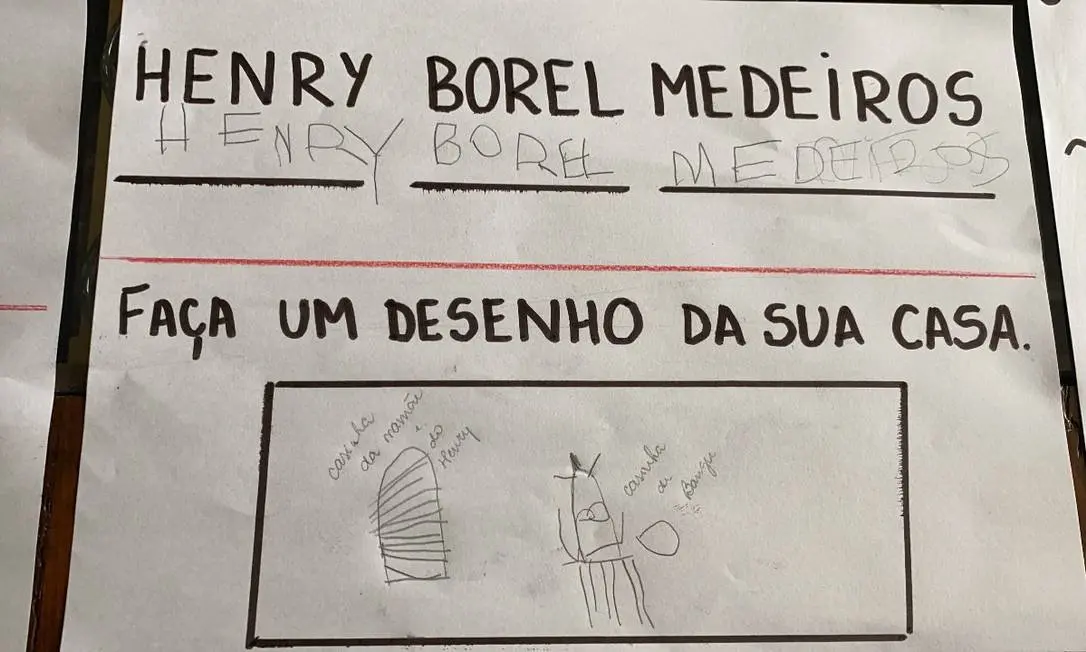 HENRY BOREL MEDEIROS
HENRY BOREL MEDEIROS
FAÇA UM DESENHO DA SUA CASA.
casinha
da mamãe
e do
Henry
casinha
de
Bangu